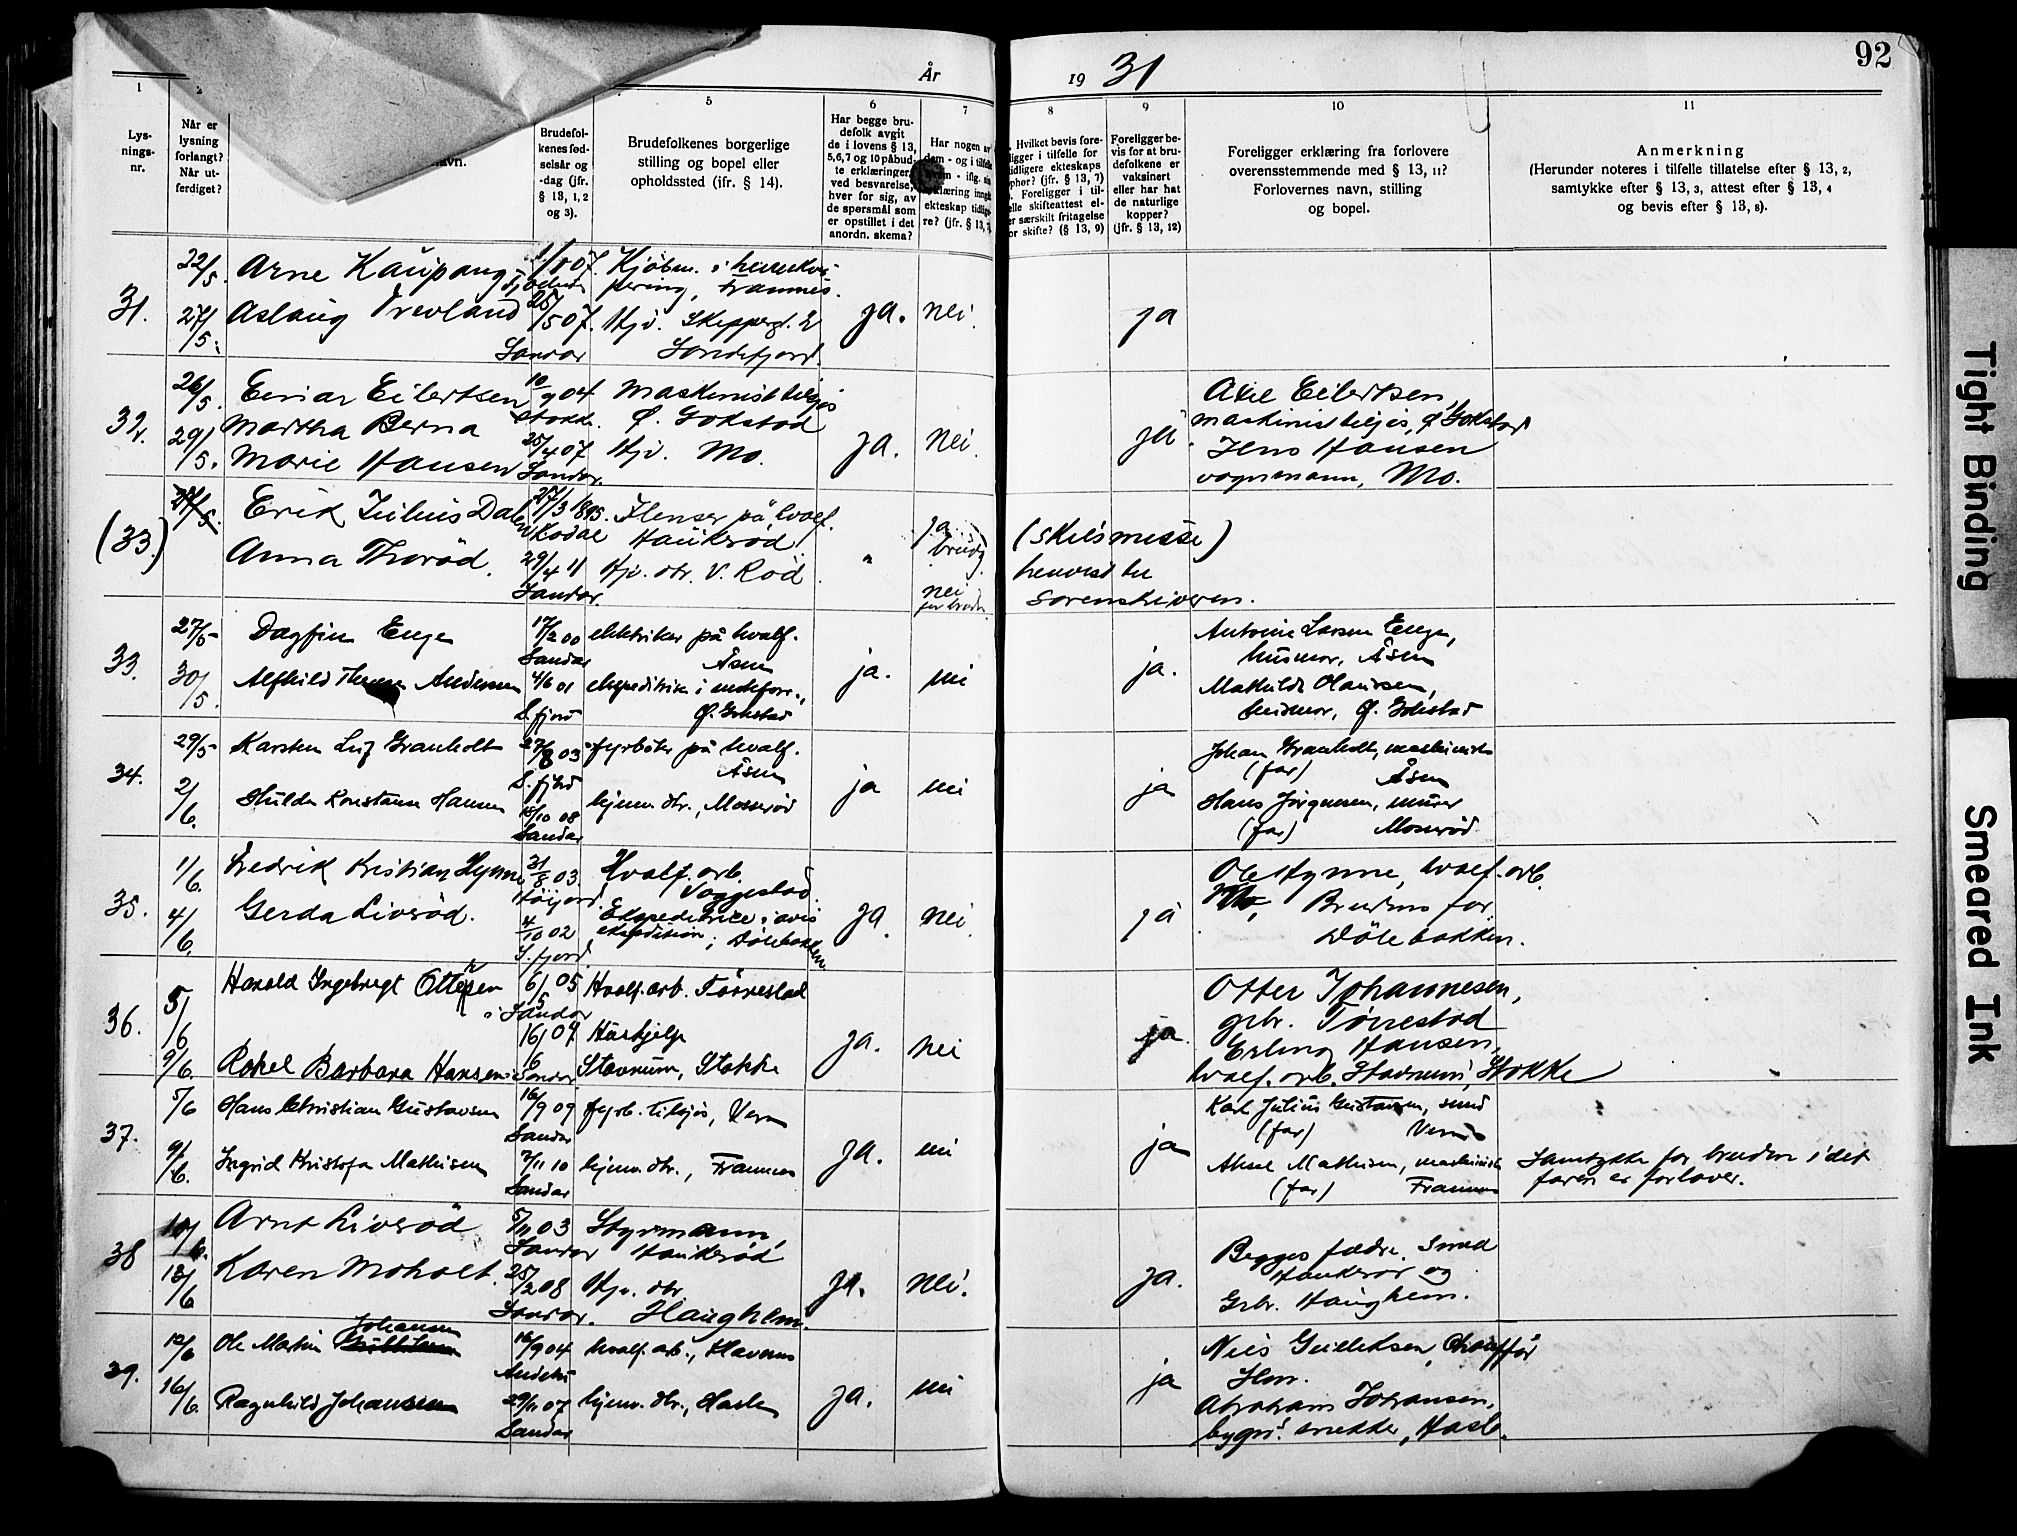 År 19 31
92
1
5
6
7
8
9
10
11
Lys-
nings-
nr.
Når er
lysning
forlangt?
Når ut-
ferdiget?
Brudefol-
kenes fød-
selsår og
-dag (jfr.
§ 13, 1, 2
og 3).
Brudefolkenes borgerlige
stilling og bopel eller
opholdssted (ifr. § 14).
Har begge bru-
defolk avgit
de i lovens § 13,
5,6,7 og 10 påbud-
te erklæringer,
ved besvarelse,
hver for sig, av
de spørsmål som
er opstillet i det
anordn. skema?
Har nogen av
dem - og i tilfelle
- iflg. sin
erklæring inngått
ekteskap tidlige-
re? (jfr. § 13,
Hvilket bevis fore-
ligger i tilfelle for
tidligere ekteskaps
ophør? (jfr. § 13, 7)
Foreligger i til-
felle skifteattest el-
er særskilt fritagelse
for skifte? (§ 13, 9)
Foreligger be-
vis for at bru-
defolkene er
vaksinert
eller har hat
de naturlige
kopper?
(jfr. § 13, 12)
Foreligger erklæring fra forlovere
overensstemmende med § 13, 11?
Forlovernes navn, stilling
og bopel.
Anmerkning
(Herunder noteres i tilfelle tillatelse efter § 13, 2,
samtykke efter § 13, 3, attest efter § 13, 4
og bevis efter § 13, 8).
31.
22/5.
27/5.
Arne Kaupang
Aslaug Trevland
25/5 07.
Sandar
Kjøbm. i herrekvi-
pering, Framnes.
Hjv. Skipperg. 2
Sandefjord.
ja.
nei.
ja
32.
26/5.
29/5.
Einar Eilertsen
Martha Berna
Marie Hansen
10/9 04
Stokk.
25/4 07
Sandar.
Maskinist tilsjøs
Ø. Gokstad
Hjv. Mo.
ja.
nei.
ja.
Axel Eilertsen,
maskinist tilsjøs, Ø. Gokstad
Jens Hansen
vognmann, Mo.
(33.)
27/5.
Erik Julius Dalen
Anna Thorød.
27/3 1895.
Kodal
29/4 11
Sandar.
Flenser på hvalf.
Haukerød
Hjv. dtr. V. Rød
"
ja
brudg.
nei
for bruden
(skilsmisse)
henvist til
Sorenskriveren.
33.
27/5
30/5.
Dagfin Enge
Alfhild Andersen
17/2 00
Sandar
4/6 01
S.fjord
elektriker på hvalf.
Åsen
ekspeditrise i
Ø. Gokstad
ja.
nei
ja.
Antonie Larsen Enge,
husmor, Åsen
Mathilde Olausen,
husmor, Ø. Gokstad
34.
29/5
2/6.
Karsten Granholt
Hulda Konstanse Hansen
27/8 03
S.fjord
10 08
Sandar
fyrbøter på hvalf.
Åsen
hjemv. dtr., Moserød
ja
nei
ja
Johan Granholt, maskinist
(far) Åsen
Hans Jørgensen, murer
(far) Moserød
35.
1/6.
4/6.
Fredrik Kristian Hynne
Gerda Livsrød.
31/8 03.
Høijord.
4/10 02
S.fjord
Hvalf. arb.
Vaggestad.
Ekspeditrice i avis
ekspedition; Dølebakken.
ja.
nei.
ja
Ole Hynne, hvalf. arb.
Brudens far,
Dølebakken.
36.
5/6
9/6.
Harald Ingebregt Ottersen
Rakel Barbara Hansen
6/5 05
i Sandar
16/6 07
Sandar
Hvalf. arb. Tørrestad
Hushjelp
Stavnum, Stokke
ja.
nei
ja.
Otter Johannesen,
grb. Tørrestad
Erling Hansen,
hvalf. arb. Stavnum, Stokke
37.
5/6
9/6.
Hans Christian Gustavsen
Ingrid Kristofa Mathisen
16/9 09
Sandar
7/11 10
Sandar
fyrb. tilsjøs, Vera
hjemv. dtr., Framnes
ja.
nei
ja
Karl Julius Gustavsen, smed
(far)
Aksel Mathisen, maskinist
(far) Framnes
Samtykke for bruden idet
faren er forlover.
38
10/6.
13/6
Arne Livsrød
Karen Moholt.
5/11 03
Sandar
25/2 08
Sandar.
Styrmann,
Haukerød
Hjv. dtr.
Haughem.
ja.
nei.
ja.
Begges fædre. Smed
Haukerød og
Grb. Haughem.
39.
12/6
16/6.
Ole Martin Johansen
Ragnhild Johansen
16/9 04
Andebu
29/11 07
Sandar
hvalf. arb., Havnes
hjemv. dtr., Hasle
ja.
nei
ja
Nils Gulliksen, Chauffør
Hem.
Abraham Johansen,
bygn. snekker, Hasle.
Tight Binding
Smeared Ink